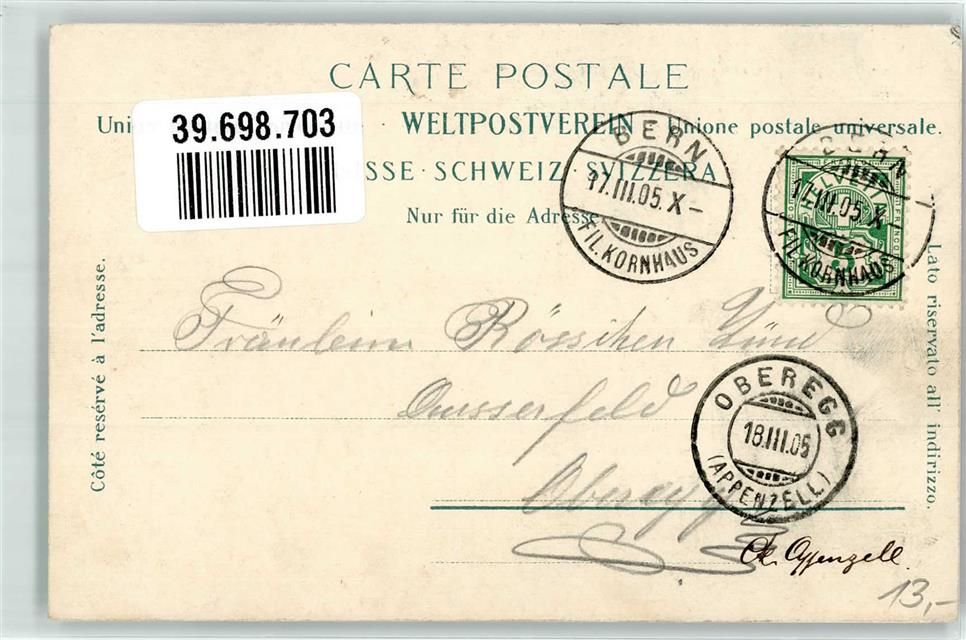 CARTE POSTALE
39.698.703
Uni · WELTPOSTVEREIN · Unione postale universale.
ISSE · SCHWEIZ · SVIZZERA
Nur für die Adresse
BERN
17.III.05. X –
FIL. KORNHAUS
BERN
17.III.05. X
FIL. KORNHAUS
FRANCO
Côté reservé à l'adresse.
Lato riservato all' indirizzo.
Fräulein Rösschen Zünd
Ausserfeld
Oberegg
OBEREGG
18.III.05
(APPENZELL)
Ct. Appenzell.
13,-